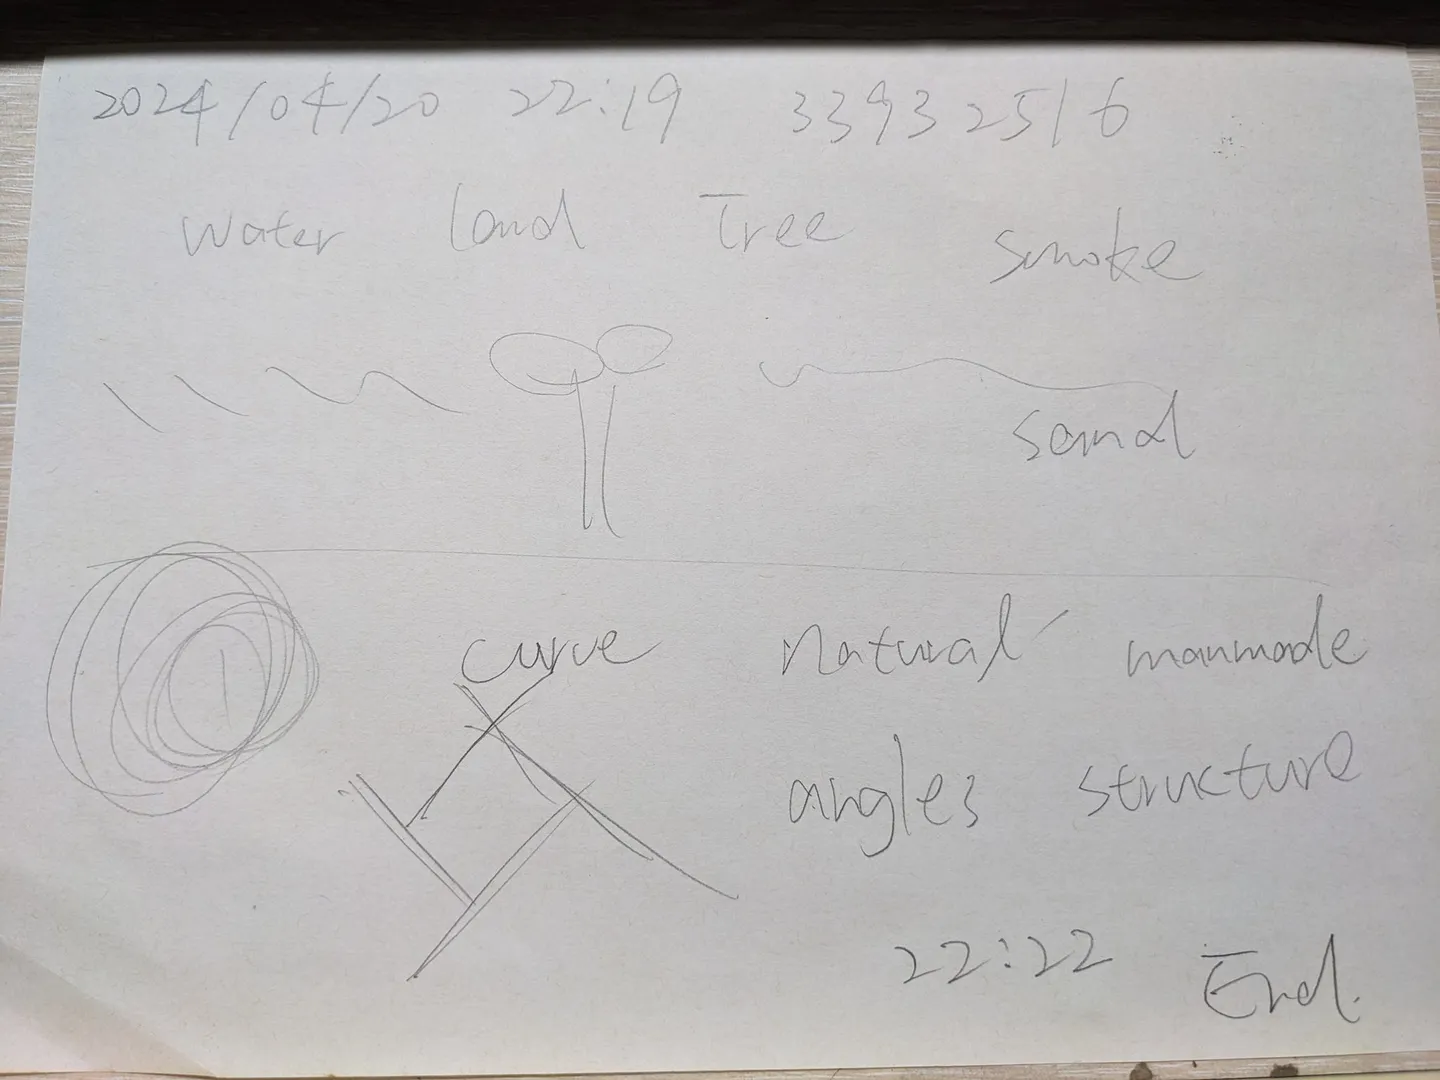 2024/04/20 22:19 33932516
Water Land Tree Smoke
Sand
1
curve natural manmade
angles structure
22:22 End.